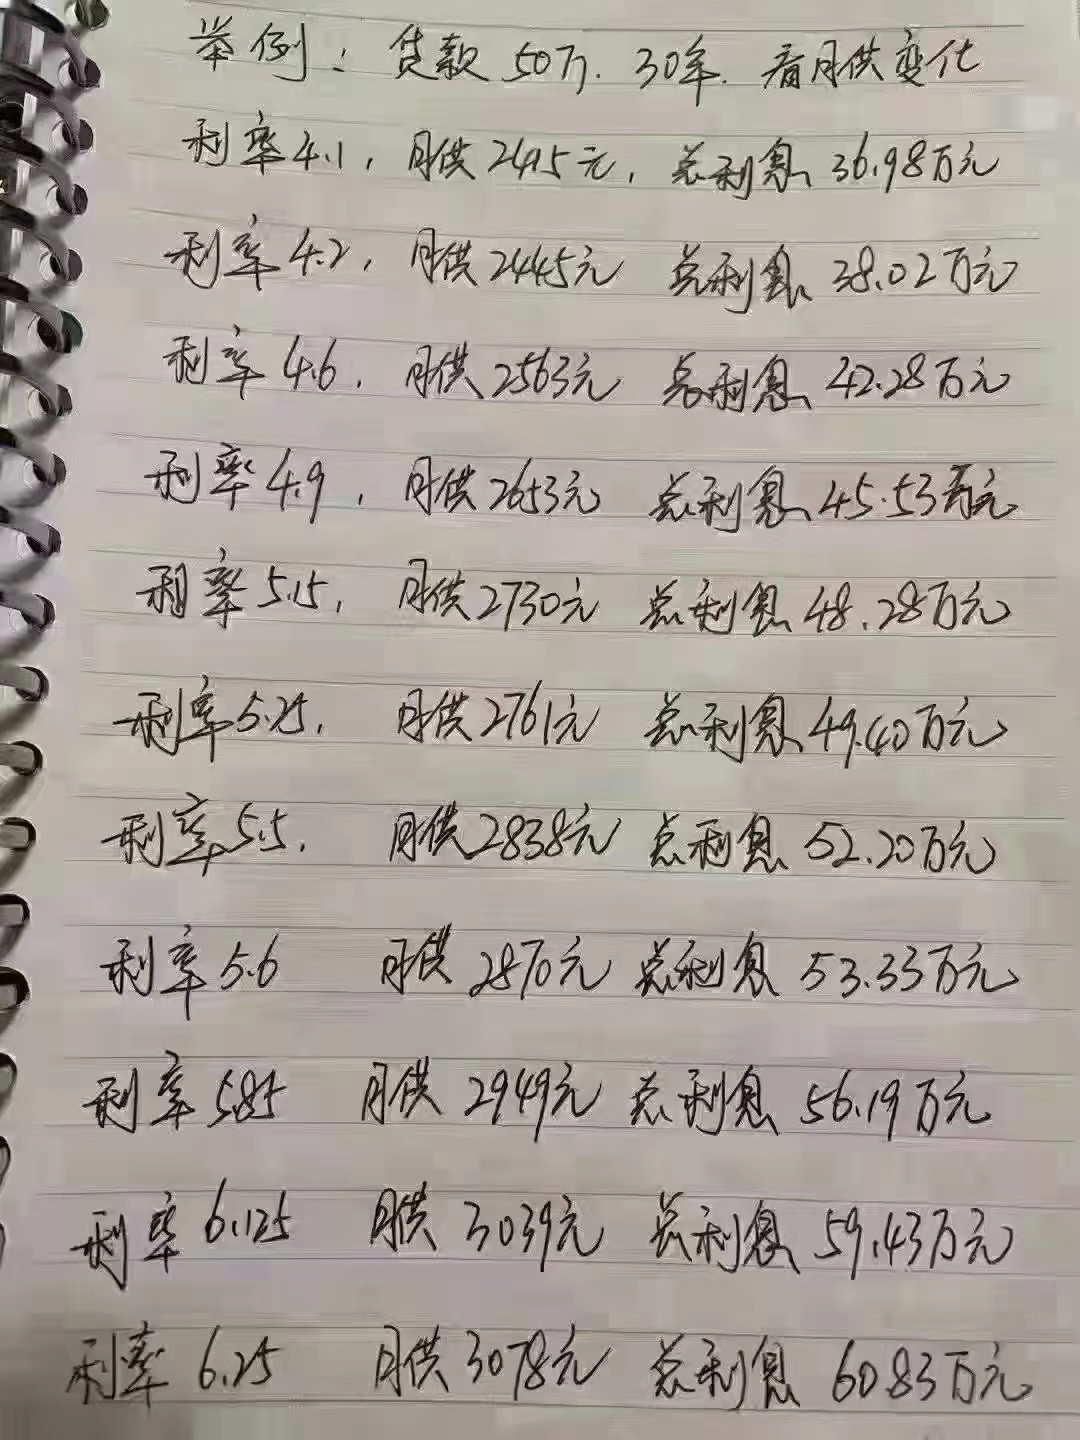 举例：贷款50万.30年.看月供变化
利率4.1，月供2415元，总利息36.98万元
利率4.2，月供2445元 总利息38.02万元
利率4.6，月供2563元 总利息42.28万元
利率4.9，月供2653元 总利息45.53万元
利率5.15，月供2730元 总利息48.28万元
利率5.25，月供2761元 总利息49.40万元
利率5.5， 月供2838元 总利息52.20万元
利率5.6 月供2870元 总利息53.33万元
利率5.85 月供2949元 总利息56.19万元
利率6.125 月供3039元 总利息59.43万元
利率6.25 月供3078元 总利息60.83万元